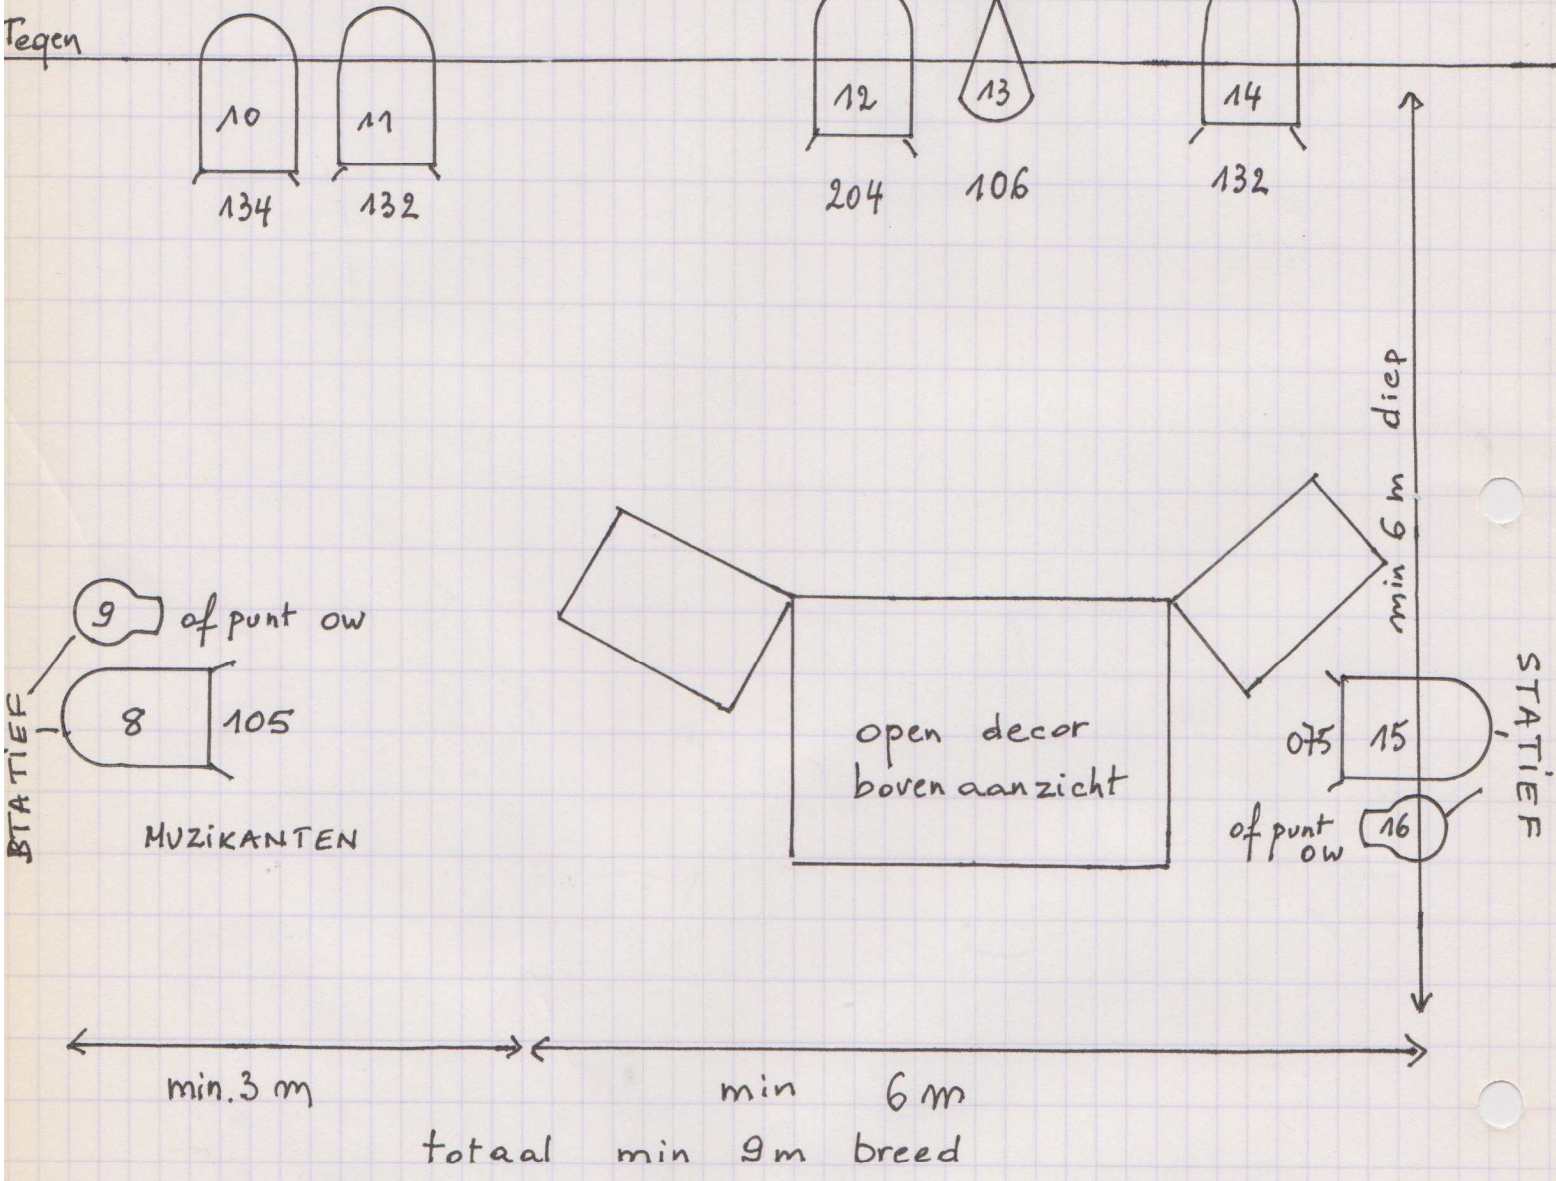 Tegen
10
11
12
13
14
134
132
204
106
132
min 6 m diep
9 of punt ow
8 105
STATIEF
MUZIKANTEN
open decor
bovenaanzicht
075 15
STATiEF
of punt 16
ow
min. 3 m
min 6 m
totaal min 9m breed